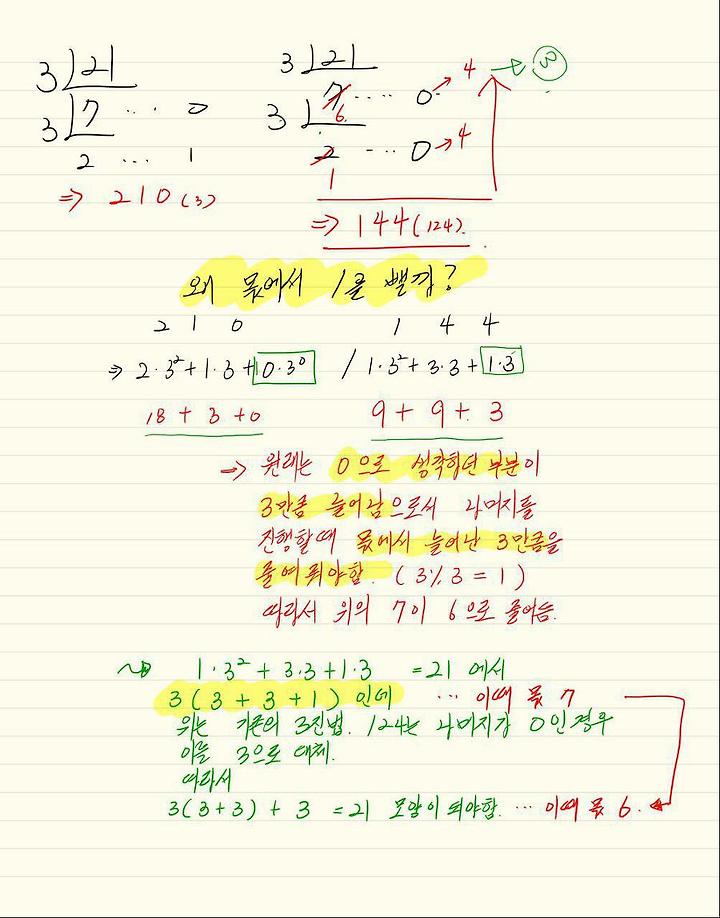 3 | 21
3 | 7 ... 0
2 ... 1
⇒ 210(3)
3 | 21
3 | 7 6 .... 0 → 4 → ③
2 1 ... 0 → 4
⇒ 144(124).
왜 몫에서 1를 뺄까?
2 1 0
⇒ 2·3²+1·3+0·3⁰
18 + 3 + 0
1 4 4
/ 1·3²+3·3+1·3
9 + 9 + 3
→ 원래는 0으로 생각하던 부분이
3만큼 늘어남으로서 나머지를
진행할때 몫에서 늘어난 3만큼을
줄여줘야함. (3%3 = 1)
따라서 위의 7이 6으로 줄어듬.
1·3² + 3·3 + 1·3 = 21 에서
3(3 + 3 + 1) 인데 ... 이때 몫 7
위는 기존의 3진법. 124는 나머지가 0인경우
이를 3으로 대체.
따라서
3(3+3) + 3 = 21 모양이 되야함. ... 이때 몫 6.